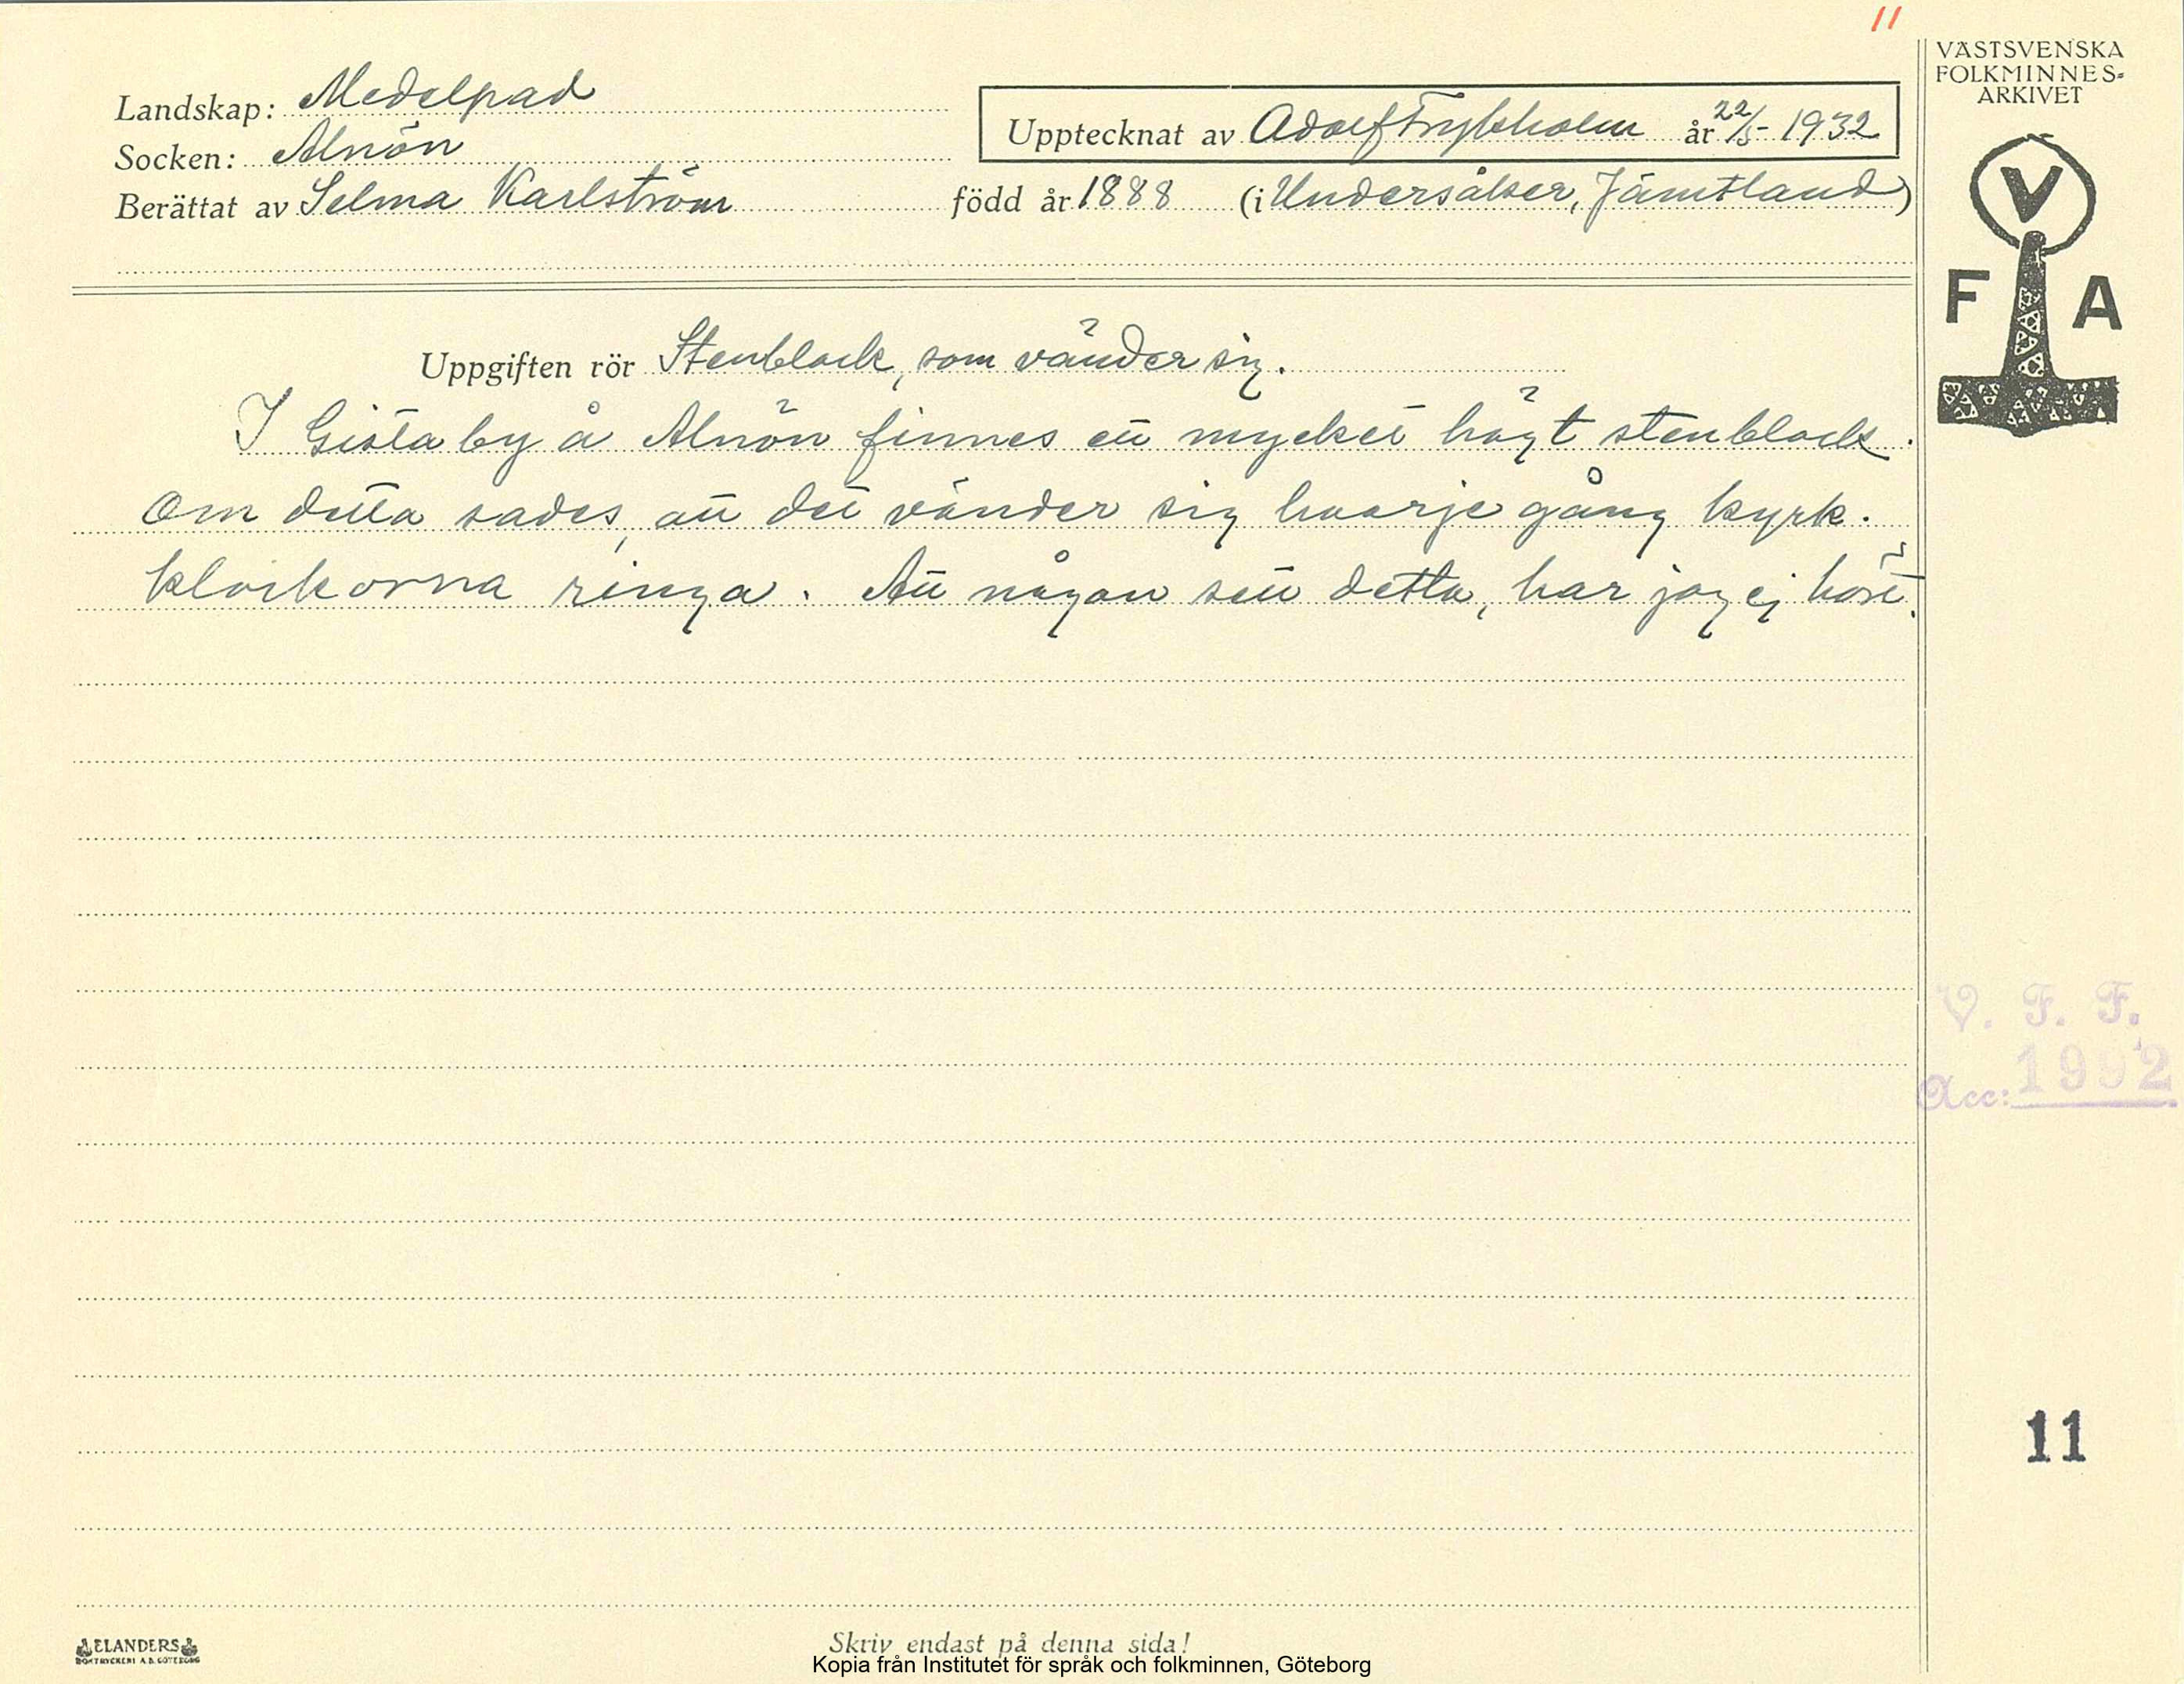 11
VÄSTSVENSKA
FOLKMINNES-
ARKIVET
Landskap: Medelpad
Upptecknat av Adolf Frykholm år 22/5 1932
Socken: Alnön
Berättat av Selma Karlström född år 1888 (i Undersåker, Jämtland)
V
F A
Uppgiften rör Stenblock, som vänder sig.
I Gista by å Alnön finnes ett mycket högt stenblock.
Om detta sades, att det vänder sig hvarje gång kyrk-
klockorna ringa. Att någon sett detta, har jag ej hört.
V. F. F.
Acc: 1992
11
ELANDERS
BOKTRYCKERI A.B. GÖTEBORG
Skriv endast på denna sida!
Kopia från Institutet för språk och folkminnen, Göteborg